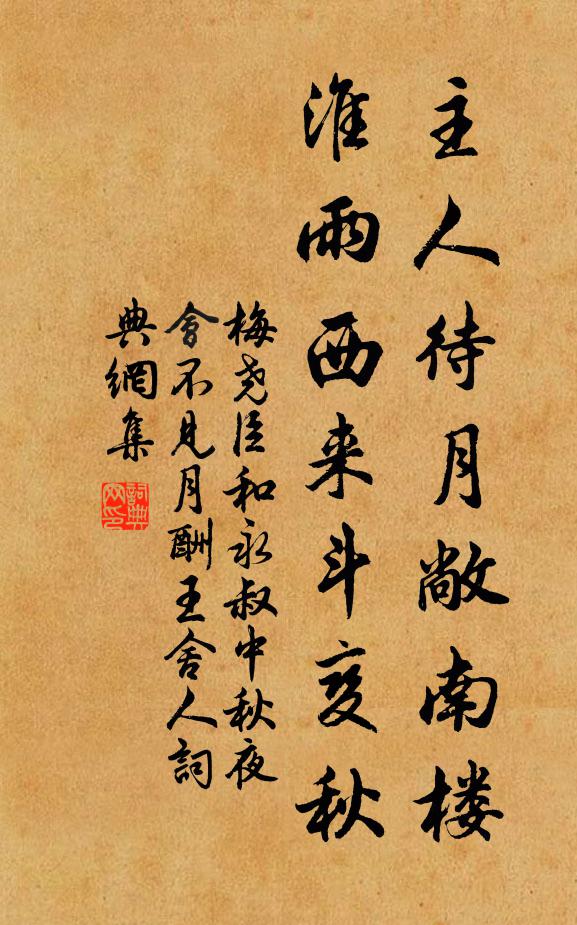 主人待月敞南楼
淮雨西来斗变秋
梅尧臣和永叔中秋夜
會不見月酬王舍人詞
典網集
詞典
网印